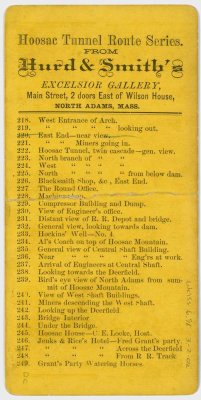 Hoosac Tunnel Route Series.
FROM
Hurd & Smith's
EXCELSIOR GALLERY,
Main Street, 2 doors East of Wilson House,
NORTH ADAMS, MASS.
218. West Entrance of Arch.
219. " " " " looking out.
220. East End—near view.
221. " " Miners going in.
222. Hoosac Tunnel, twin cascade—gen. view.
223. North branch of " "
224. West " " "
225. North " " " from below dam.
226. Blacksmith Shop, &c., East End.
227. The Round Office.
228. Machine
229. Compressor Building and Dump.
230. View of Engineer's office.
231. Distant view of R. R. Depot and bridge.
232. General view, looking towards dam.
233. Hockins' Well—No. 4
234. Al's Coach on top of Hoosac Mountain.
235. General view of Central Shaft Building.
236. Near " " " " Eng'rs at work.
237. Arrival of Engineers at Central Shaft.
238. Looking towards the Deerfield.
239. Bird's eye view of North Adams from summit of Hoosac Mountain.
240. View of West Shaft Buildings.
241. Miners descending the West Shaft.
242. Looking up the Deerfield.
243. Bridge Interior.
244. Under the Bridge.
245. Hoosac House—U. E. Locke, Host.
246. Jenks & Rice's Hotel—Fred Grant's party.
247. " " " Across the Deerfield
248. " " " From R. R. Track
249. Grant's Party Watering Horses.